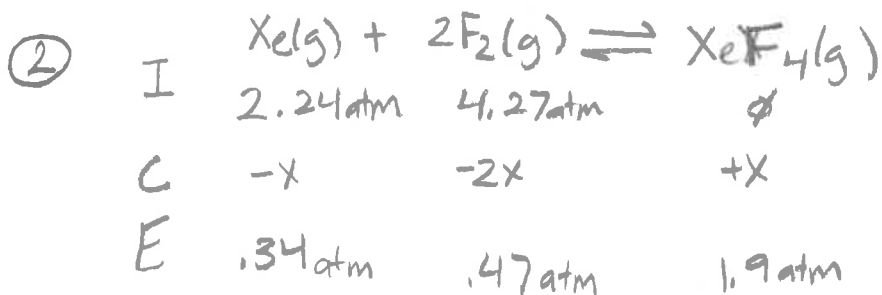 ② Xe(g) + 2F₂(g) ⇌ XeF₄(g)
I 2.24atm 4.27atm ∅
C -x -2x +x
E .34atm .47atm 1.9atm